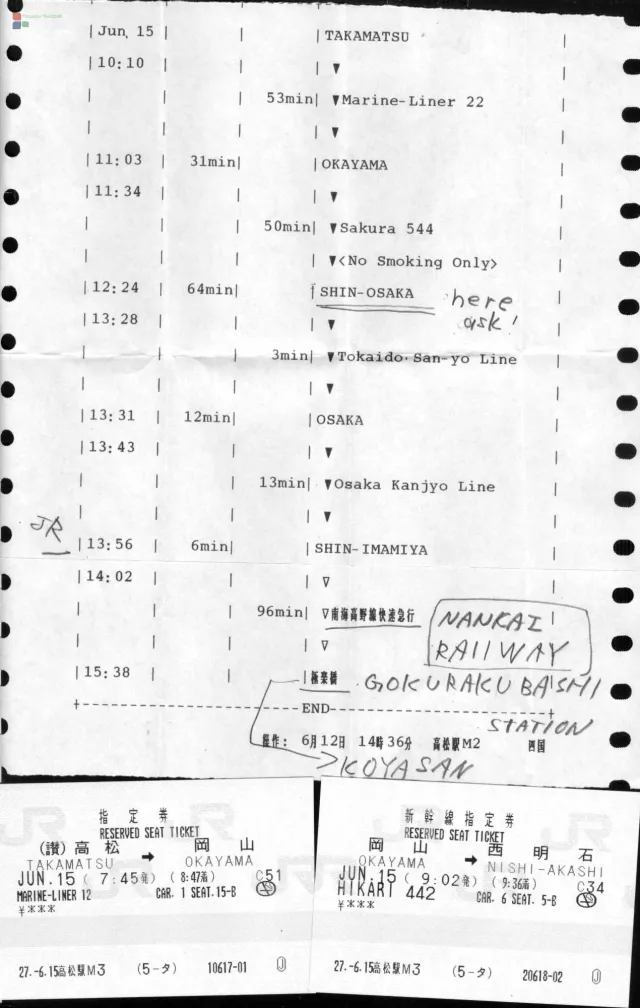 Jun. 15 TAKAMATSU
10:10 ▼
53min ▼Marine-Liner 22
▼
11:03 31min OKAYAMA
11:34 ▼
50min ▼Sakura 544
▼<No Smoking Only>
12:24 64min SHIN-OSAKA here
13:28 ▼ ask!
3min ▼Tokaido·San-yo Line
▼
13:31 12min OSAKA
13:43 ▼
13min ▼Osaka Kanjyo Line
▼
JR
13:56 6min SHIN-IMAMIYA
14:02 ▽
96min ▽南海高野線快速急行 NANKAI
▽ RAILWAY
15:38 極楽橋 GOKURAKUBASHI
END
STATION
操作: 6月12日 14時36分 高松駅M2 四国
>KOYASAN
指定券
RESERVED SEAT TICKET
(讃)高松 → 岡山
TAKAMATSU OKAYAMA
JUN.15 ( 7:45発) (8:47着) C51
MARINE-LINER 12 CAR. 1 SEAT.15-B
¥***
27.-6.15高松駅M3 (5-タ) 10617-01
新幹線指定券
RESERVED SEAT TICKET
岡山 → 西明石
OKAYAMA NISHI-AKASHI
JUN.15 ( 9:02発) (9:36着) C34
HIKARI 442 CAR. 6 SEAT. 5-B
¥***
27.-6.15高松駅M3 (5-タ) 20618-02